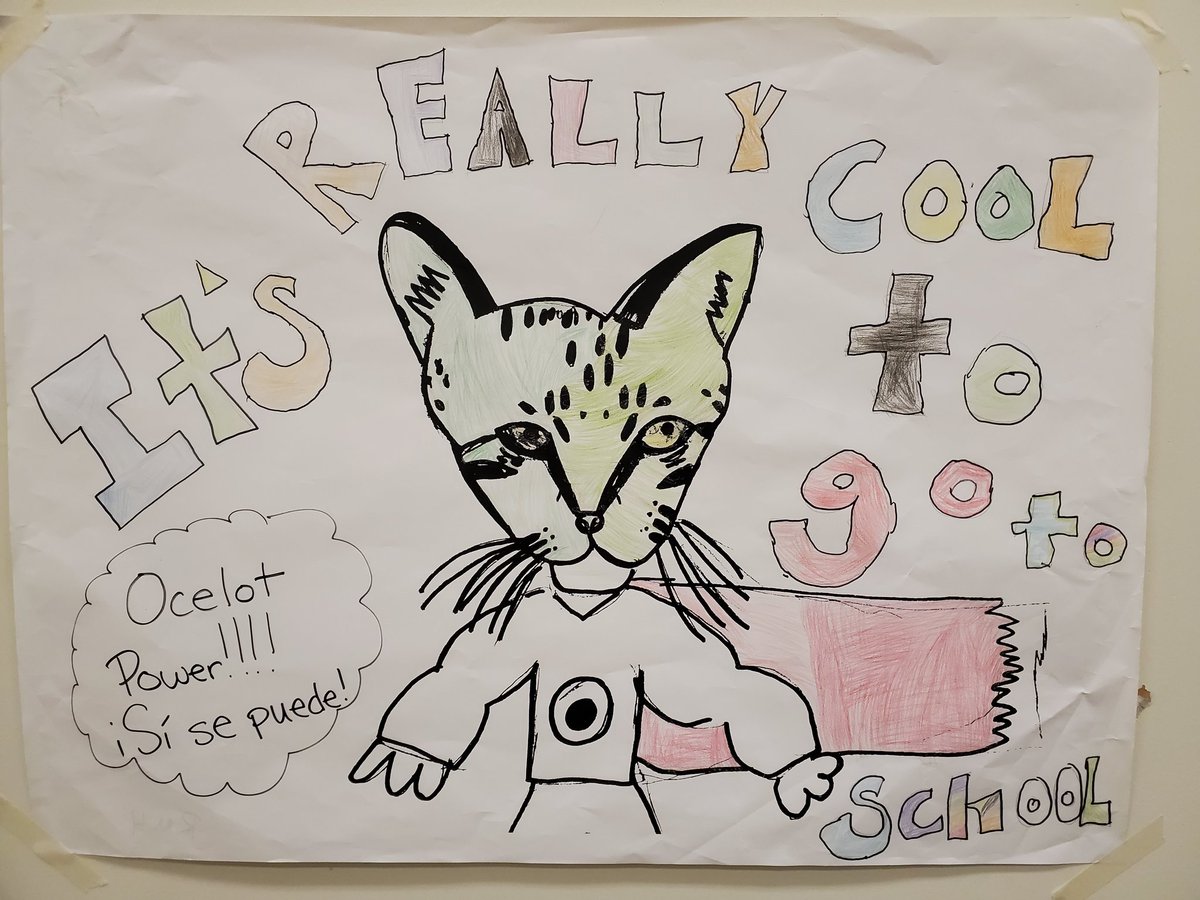 It's REALLY COOL
to
go to
School
Ocelot
Power!!!!
¡Sí se puede!